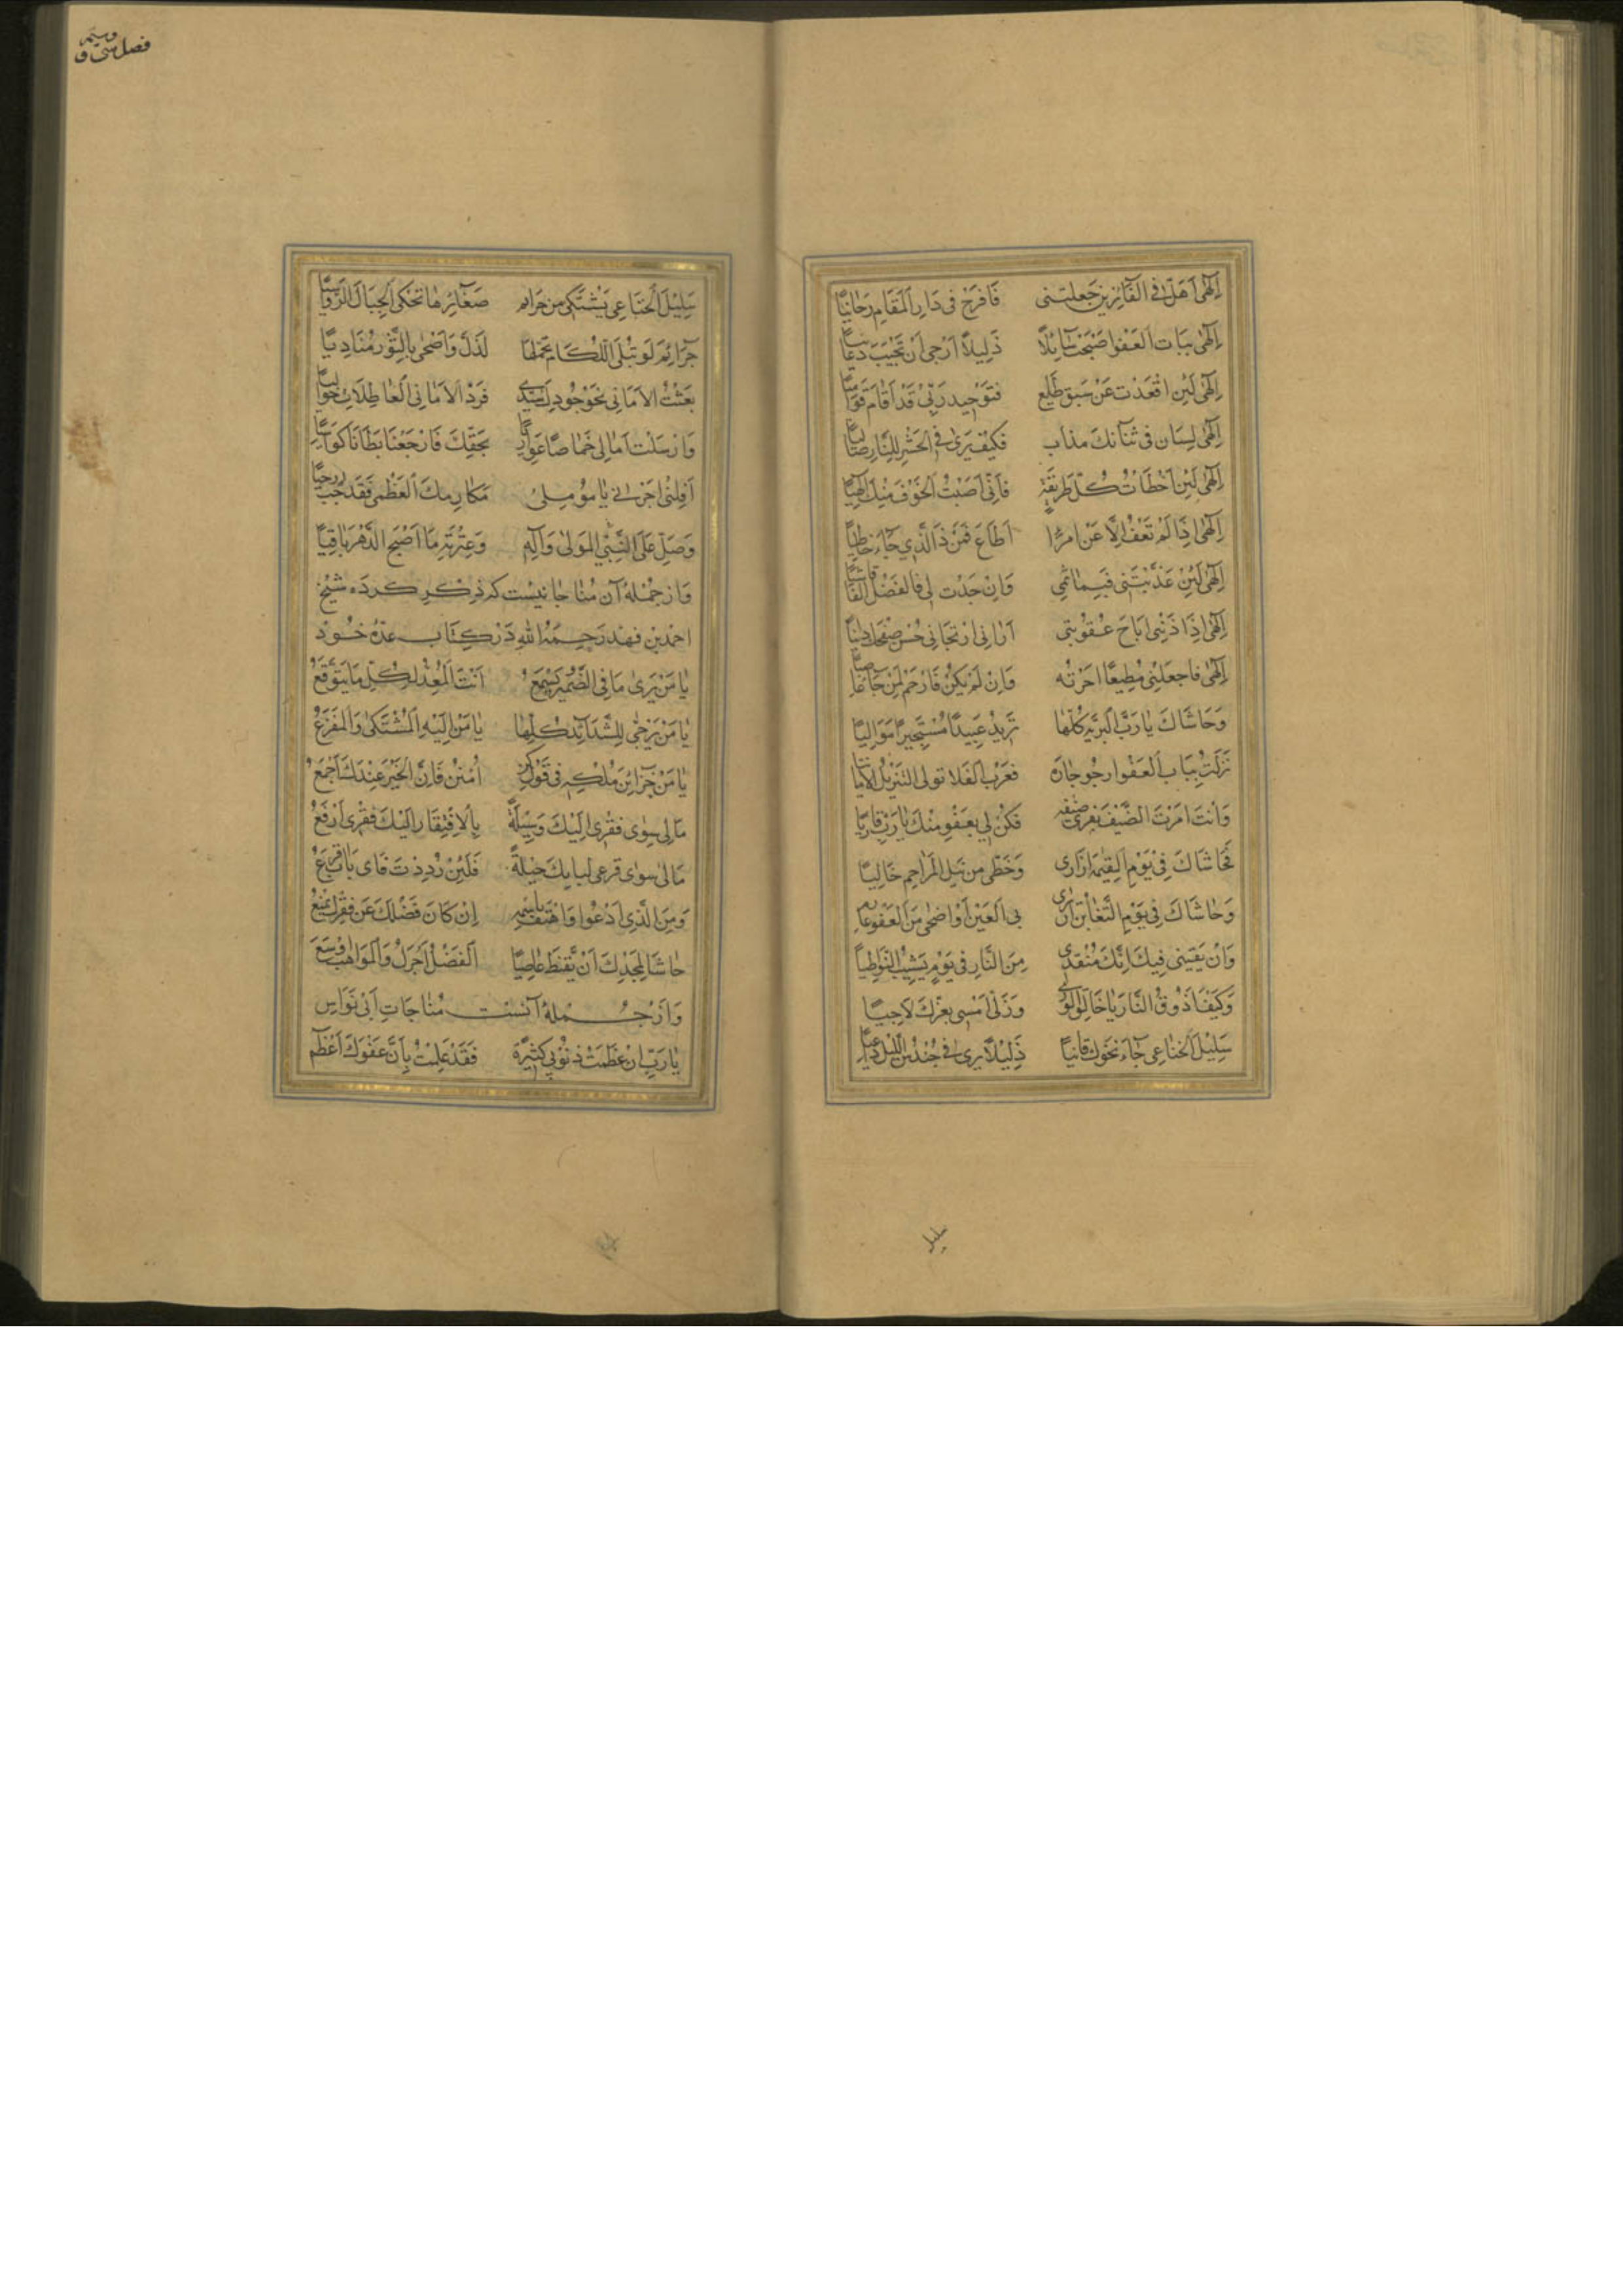 اِلٰهى اَهَلْ فى الفَآئزين جَعلتنى فَافرَحْ فى دَارِ اَلمَقَامِ رَحَانِيًا
اِلٰهى بِبَابِ اَلعَفْو اَصْبَحْتُ سَآئِلًا ذَلِيلًا اَرَجى اَنْ تُجْيبَ دُعَآئِيًا
اِلٰهى لَئِن اقْعَدْت عَنْ سَبقِ طَلع فتَوحِيد رَبّى قَدْ اَقَامَ قَوَاميًا
اِلٰهى لِسَان فى ثنآئك مذاب فكيْفَ يَرىٰ فى الحَشْرِ لِلنَّارِ صَاليًا
اِلٰهى لَئِنْ اَخْطَاْتُ كُلّ طَرِيقَةٍ فَاَنّى اَصَبْتُ اَلخَوْفَ مِنْكَ اِلٰهيًا
اِلٰهى اِذَا لَمْ تَعْفُ اِلّا عَنْ امرْءٍ اَطَاعَ فَمَنْ ذَا الَّذِى جَآءَ خَاطيًا
اِلٰهى لَئِنْ عَذّبْتَنى فَبِمَاثمى وَاِنْ جُدْت لى فَالفَضْل اَلفَاشيًا
اِلٰهى اِذَا ذَنْبى اَبَاحَ عُقُوْبتى اَرَانى ارْتجَانى حُسْن صَفْحَكَ دانيًا
اِلٰهى فَاجعَلْنى مُطِيعًا اَجَرْتُه وَاِنْ لَمْ يَكُنْ فَارْحَمْ لِمَنْ جَآءَ عَاصيًا
وَحَاشَاكَ يَا رَبَّ اَلبَرِيّة كُلّهَا تَرِيدُ عَبيدًا مُسْتَجيرًا مَوَاليًا
نَزَلْتُ بِبَابِ اَلعَفْو ارجُو جَانَه فعَرْب اَلفَلا تولى النَزيْل الاَمَانيًا
وَاَنتَ اَمَرْتَ الضَّيْفَ يَقرى ضَيْفه فَكُنْ لى بِعَفْوٍ مِنْكَ يَا رَبّ قَاريًا
فَحَاشَاكَ فى يَوْمِ اَلقِيٰمَة اِنْ اَرى وَحَظّى مِن نَيلِ المَرَاحِم خَاليًا
وَحَاشَاكَ فى يَوْمِ التَّغَابُنِ اَنْ ارى بى اَلعَيْن اَوْ اضحى مِنَ اَلعَفْو عَاريًا
وَاِنْ يَقينى فيكَ اِنّكَ مُنْقذى مِنَ النَّارِ فى يَوْمٍ يَشِيْبُ النَّوَاصيًا
وَكَيْفَ اَذُوقُ النَّارَ يَا خَالِقَ اَلوَرى وَزَلّى اَمْسى بِعِزّكَ لَاجيًا
سَلِيْلُ اَلخنَاعِى جَآءَ نحْوَكَ قَانيًا ذَلِيْلًا يَرى فى جُنْدُسِ اللَّيْلِ دَاعيًا
سليل
فصل سى و
سَلِيْلُ اَلخنَاعِى يَشْتَكى مِن جَرَآئِم صَغَآئِرهَا تَحْكى اَلجِبَالَ الرَّوَاسيًا
جَرَآئِمَ لَوْ تُبْلى اَللُّكَام بِحَمْلهَا لَذَلَّ وَاَضْحى بِالثُّبُوْرِ مُنَادِيًا
بَعَثْتُ الاَمَانى نَحْوَ جُوْدِكَ سَيّدى فَرَدّ الاَمَانى اَلعَاطِلَاتِ حَوَاليًا
وَارْسَلْت اَمَالى خَمَاصًا عَوَاريًا بحَقِّكَ فَارْجَعْنَا بَطَانًا كَوَاسيًا
اَقِلْنى اَجرنى يَا مُؤملى مَكَارِمكَ اَلعَظْمى فَقَدْ جئت راجيًا
وَصَلِّ عَلَى النَّبِىِّ اَلمَوْلىٰ وَآلِه وَعِتْرَتِه مَا اَصْبَحَ الدَّهْرُ بَاقِيًا
وَاز جُمْلهٔ آن مُنَاجَاتيست كه ذِكْرِ كرده شيْخ
احمد بن فهد رَحِمَهُ اللهِ دَرْ كِتَاب عدّهٔ خُود
يَا مَنْ يَرىٰ مَا فى الضَّمِيْرِ وَيَسْمَعُ اَنْتَ اَلمُعِدُّ لِكُلِّ مَا يَتَوَقَّعُ
يَا مَنْ يُرَجّٰى لِلشَّدَآئِدِ كُلِّهَا يَا مَنْ اِلَيْهِ اَلمُشْتَكىٰ وَاَلمَفزَعُ
يَا مَنْ خَزَآئِنُ مُلْكِهِ فى قَوْلِ كُنْ اُمْنُنْ فَاِنَّ اَلخَيْرَ عِنْدَكَ اَجْمَعُ
مَا لى سِوٰى فَقْرِى اِلَيْكَ وَسِيْلَةٌ بِالاِفْتِقَارِ اِلَيْكَ فقْرِى اَرْفَعُ
مَا لى سِوٰى قرعى لبابِكَ حيْلةٌ فَلَئِنْ رُدِدْتُ فَاىَ بَابٍ اَقْرَعُ
وَمَنِ الَّذِى اَدْعُوا وَاَهْتِفُ بِاسْمِهِ اِنْ كَانَ فَضْلُكَ عَنْ فَقِيْرِكَ يُمْنَعُ
حَاشَا لِمَجْدِكَ اَنْ يُّقنِطَ عَاصِيًا اَلفَضْلُ اَجْزَلُ وَاَلمَوَاهِبُ اَوْسَعُ
وَاَزْ جُمْلهٔ آنست مُنَاجَاتِ اَبى نَوَاس
يَا رَبِّ اِنْ عَظُمَتْ ذنُوْبى كَثِيْرَةً فَقَدْ عَلِمْتُ بِاَنَّ عَفْوَكَ اَعْظَم